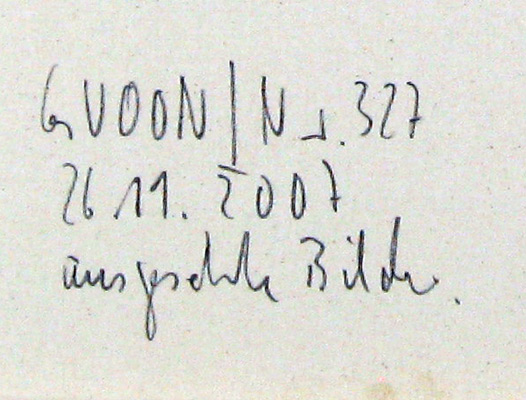 GVOON | Nr. 327
26.11.2007
Bilder.